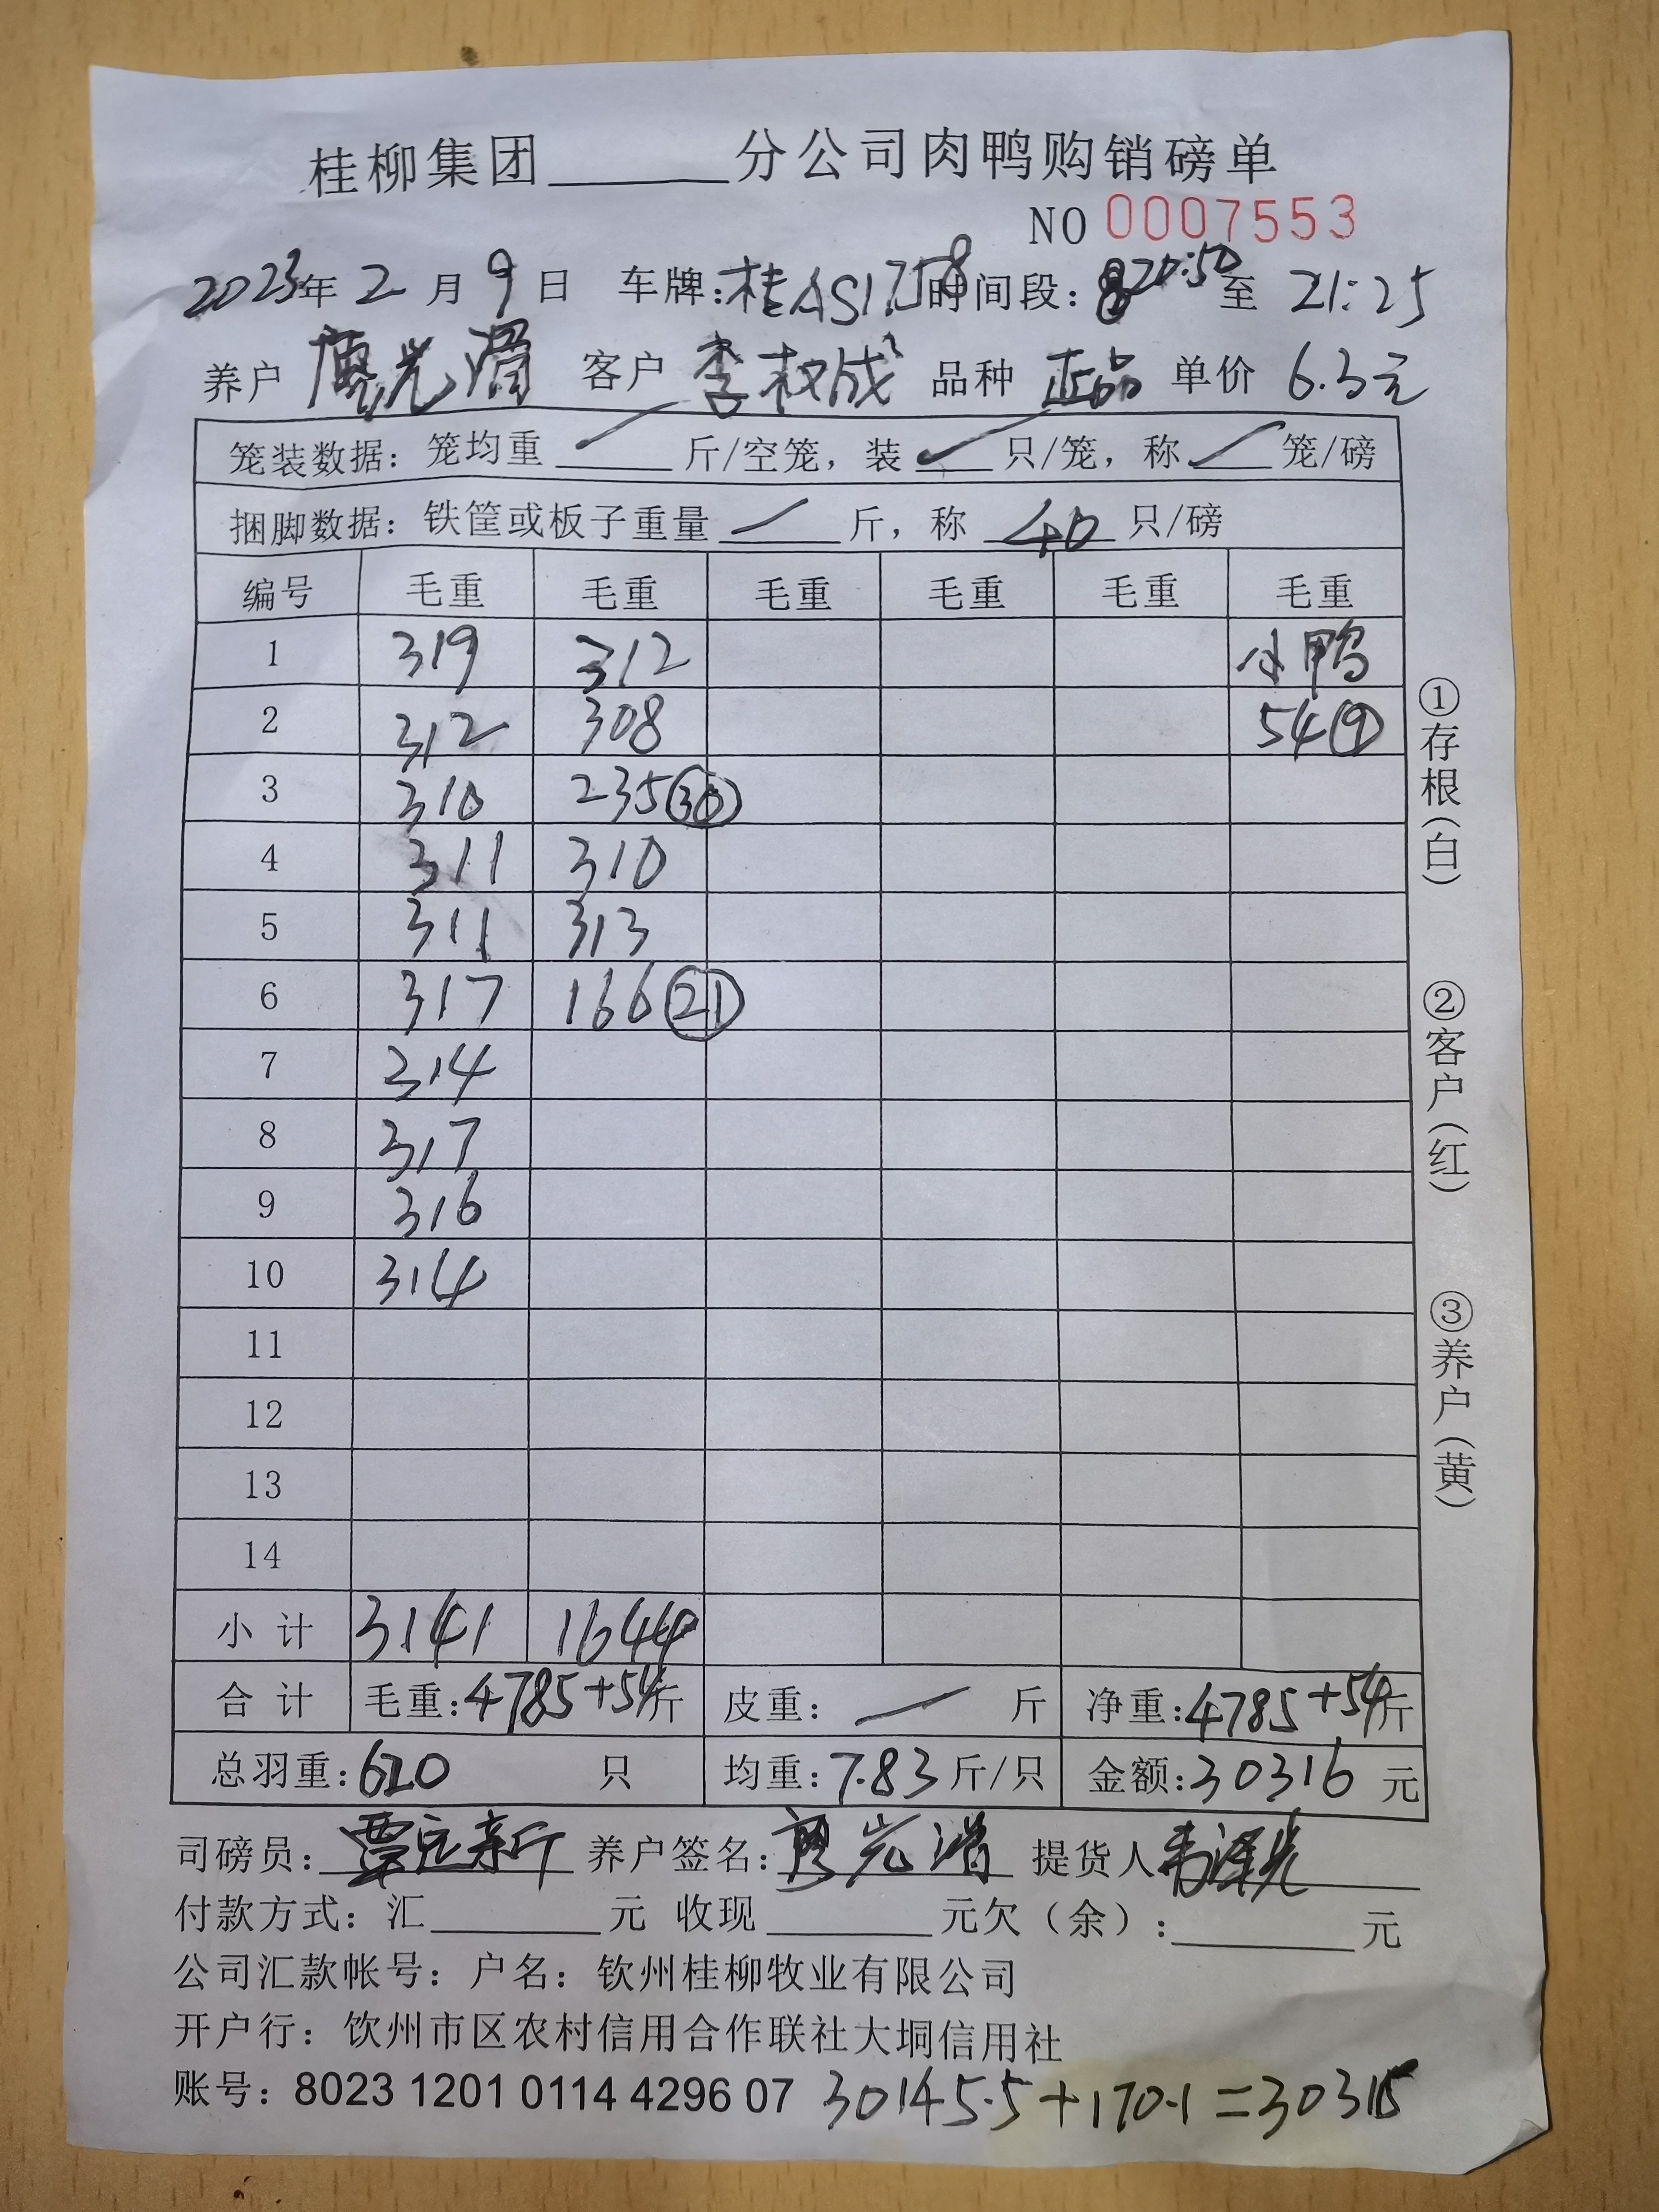 桂柳集团______分公司肉鸭购销磅单
NO 0007553
2023年 2 月 9 日 车牌:桂AS1758 时间段: 20:50 至 21:25
养户 廖光 客户 李权成 品种 正品 单价 6.3元
笼装数据: 笼均重 ____ 斤/空笼, 装 ____ 只/笼, 称 ____ 笼/磅
捆脚数据: 铁筐或板子重量 ____ 斤, 称 40 只/磅
编号 毛重 毛重 毛重 毛重 毛重 毛重
1 319 312 小鸭
2 312 308 54⑨
3 310 235㉚
4 311 310
5 311 313
6 317 166㉑
7 314
8 317
9 316
10 314
11
12
13
14
小 计 3141 1644
合 计 毛重:4785+54斤 皮重: 斤 净重:4785+54斤
总羽重:620 只 均重:7.83斤/只 金额:30316 元
司磅员: 覃 新 养户签名: 廖光 提货人
付款方式: 汇______元 收现______元欠(余):______元
公司汇款帐号: 户名: 钦州桂柳牧业有限公司
开户行: 饮州市区农村信用合作联社大垌信用社
账号: 8023 1201 0114 4296 07 30145.5+170.1=30315
①存根(白)
②客户(红)
③养户(黄)